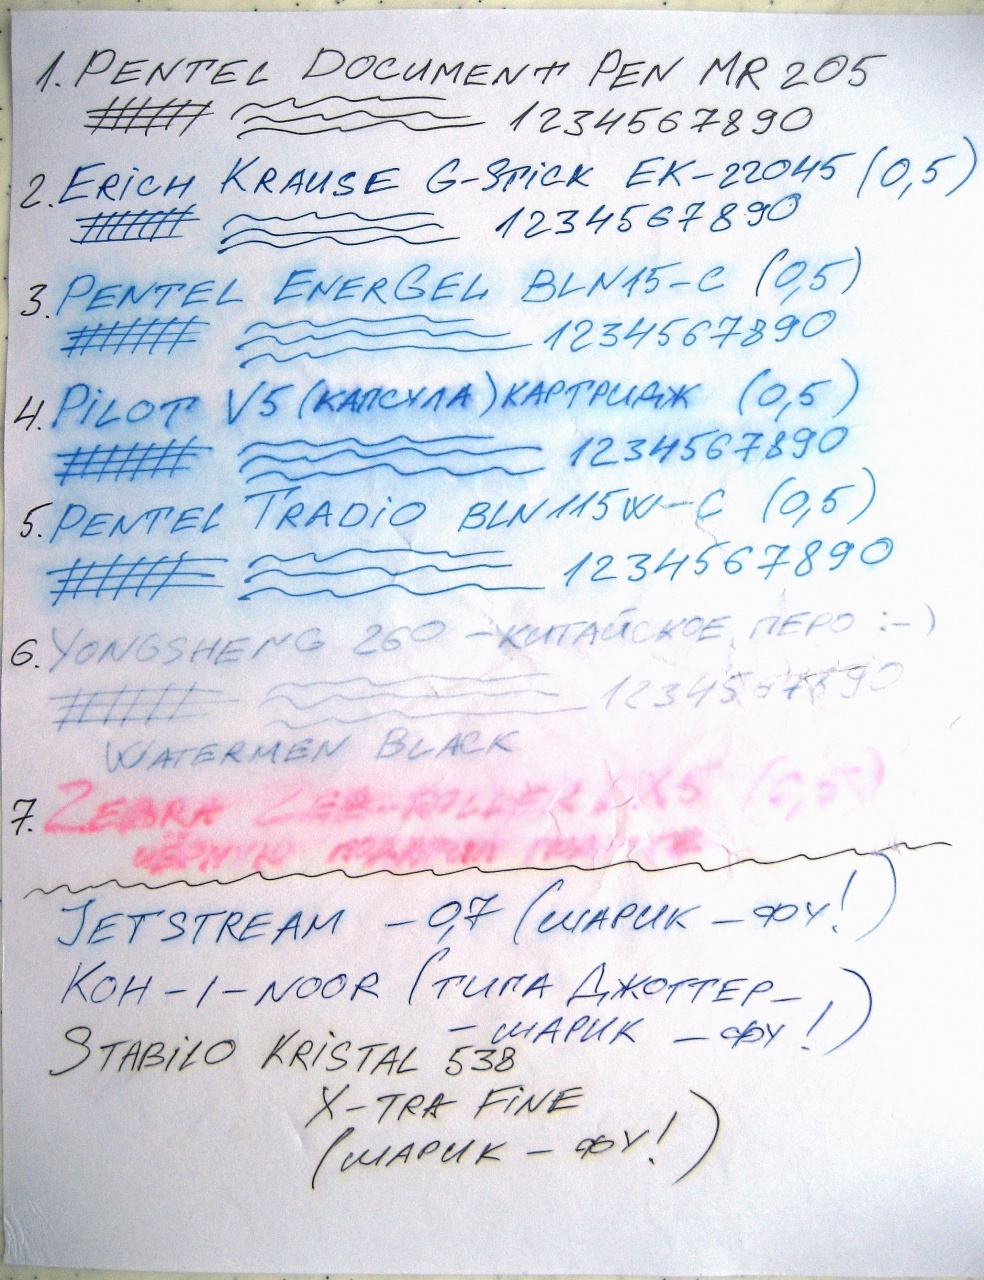 1. PENTEL DOCUMENT PEN MR 205
1234567890
2. ERICH KRAUSE G-STICK EK-22045 (0,5)
1234567890
3. PENTEL ENERGEL BLN15-C (0,5)
1234567890
4. PILOT V5 (КАПСУЛА) КАРТРИДЖ (0,5)
1234567890
5. PENTEL TRADIO BLN115W-C (0,5)
1234567890
6. YONGSHENG 260 - КИТАЙСКОЕ ПЕРО :-)
1234567890
WATERMEN BLACK
7. ZEBRA ZEB-ROLLER DX5 (0,5)
JETSTREAM - 0,7 (ШАРИК - ФУ!)
KOH-I-NOOR (ТИПА ДЖОТТЕР-
- ШАРИК - ФУ!)
STABILO KRISTAL 538
X-TRA FINE
(ШАРИК - ФУ!)